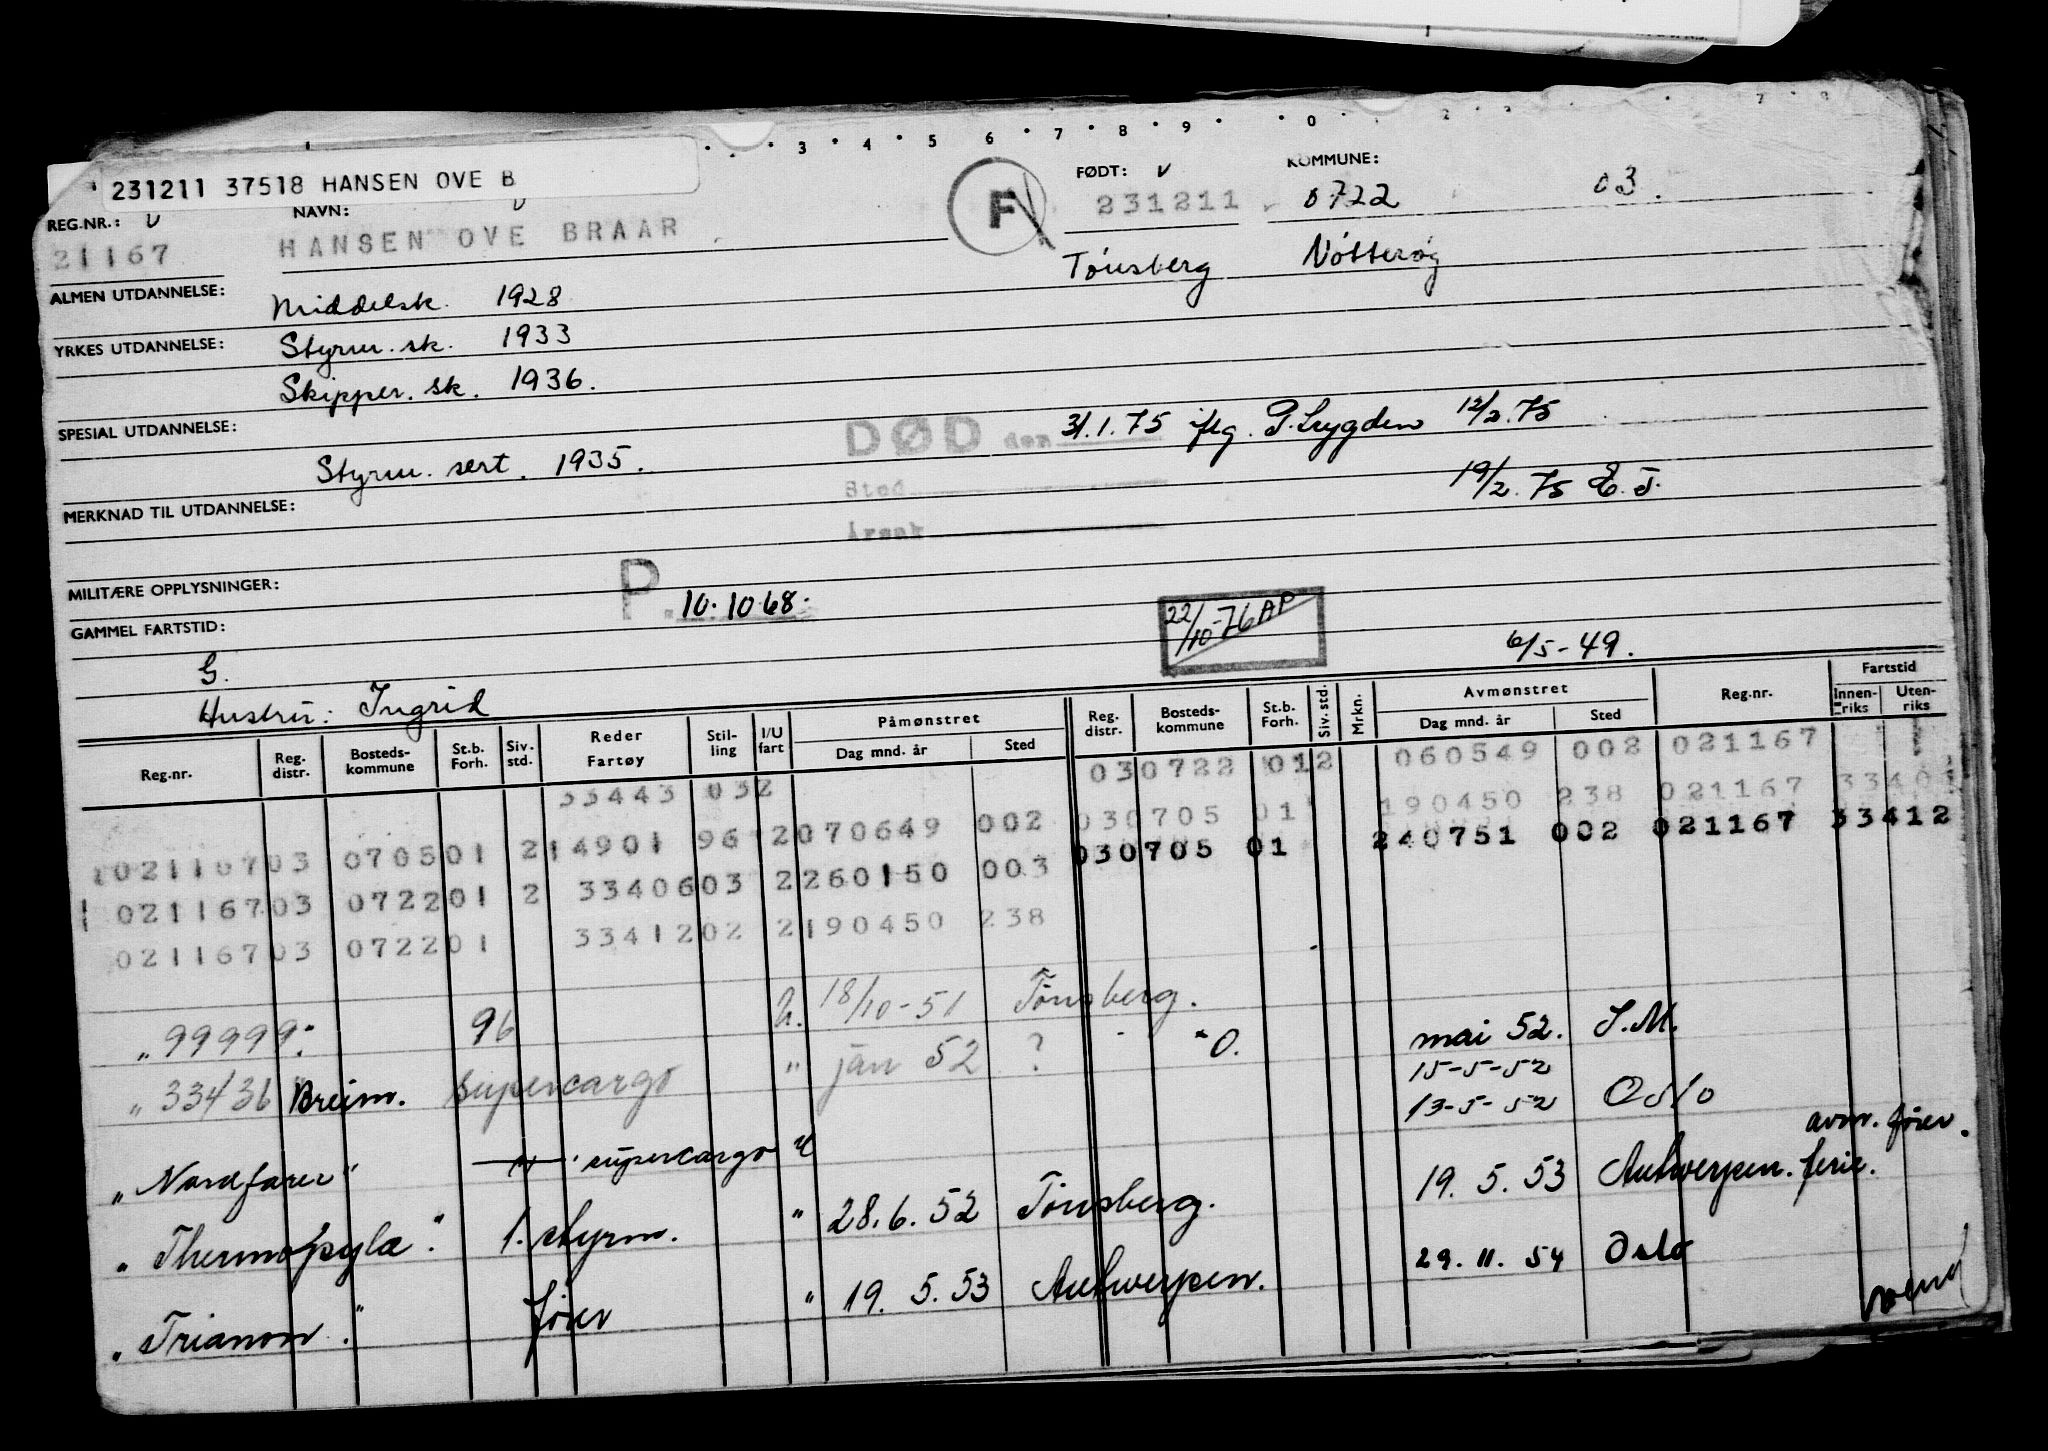 231211 37518 HANSEN OVE B
REG.NR.: NAVN: F FØDT: KOMMUNE:
21167 HANSEN OVE BRAAR 231211 0722 03.
Tönsberg Nötteröy
ALMEN UTDANNELSE: Middelsk. 1928
YRKES UTDANNELSE: Styrm. sk. 1933
Skipper. sk. 1936.
SPESIAL UTDANNELSE: DØD den 31.1.75 12/2.75
Styrm. sert. 1935. Sted 19/2.75 E.J.
MERKNAD TIL UTDANNELSE: Årsak
MILITÆRE OPPLYSNINGER: P. 10.10.68.
22/10-76 AP
GAMMEL FARTSTID: 6/5-49.
G.
Hustru: Ingrid
Reg.nr. Reg. distr. Bosteds-kommune St.b. Forh. Siv. std. Reder Fartøy Stil-ling I/U fart Påmønstret Dag mnd. år Sted Reg. distr. Bosteds-kommune St.b. Forh. Siv. std. Mrkn. Avmønstret Dag mnd. år Sted Reg.nr. Fartstid Innen-riks Uten-riks
33443 032 030722 012 060549 002 021167
021167 03 0705 01 2 14901 96 2 070649 002 030705 01 190450 238 021167 3340
021167 03 0722 01 2 33406 03 2 260150 003 030705 01 240751 002 021167 33412
021167 03 0722 01 33412 02 2 190450 238
" 99999 96 18/10-51 Tönsberg.
" 33436 Breim. supercargo " jan 52 ? O. mai 52. S.M.
15-5-52
13-5-52 Oslo
" Nordfarer " supercargo
avm. fører.
" Thermopylæ " 1. styrm. " 28.6.52 Tönsberg. 19.5.53 Antwerpen. ferie.
" Trianon " fører " 19.5.53 Antwerpen. 29.11.54 Oslo
vend